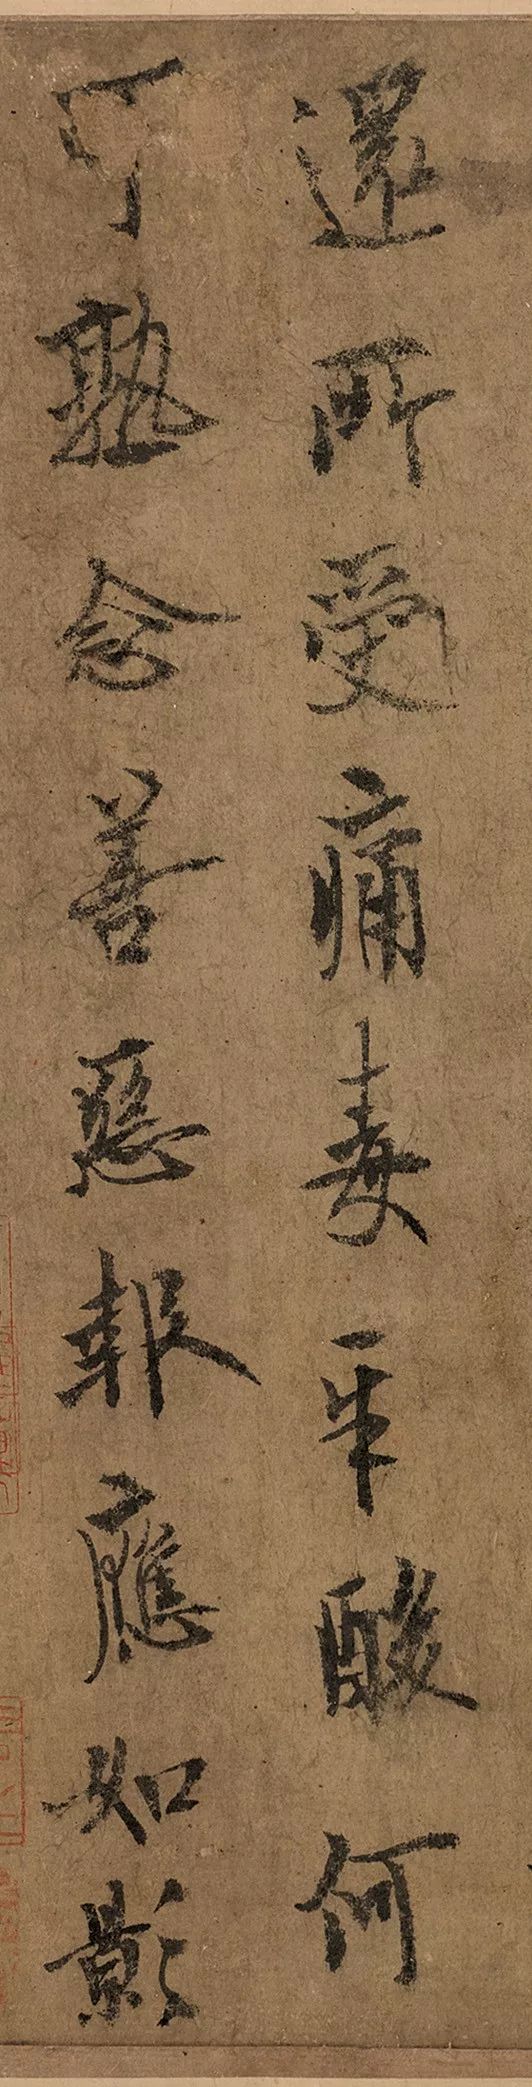 還所受痛毒辛酸何
可熟念善惡報應如影